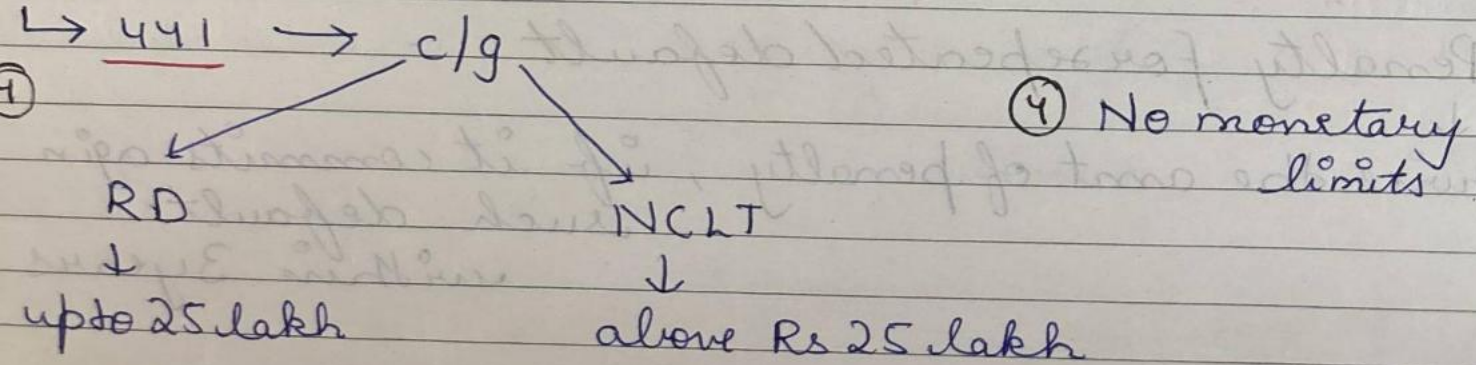 ↳ 441 → c/g
①
④ No monetary
limits
RD NCLT
↓ ↓
upto 25 lakh above Rs 25 lakh